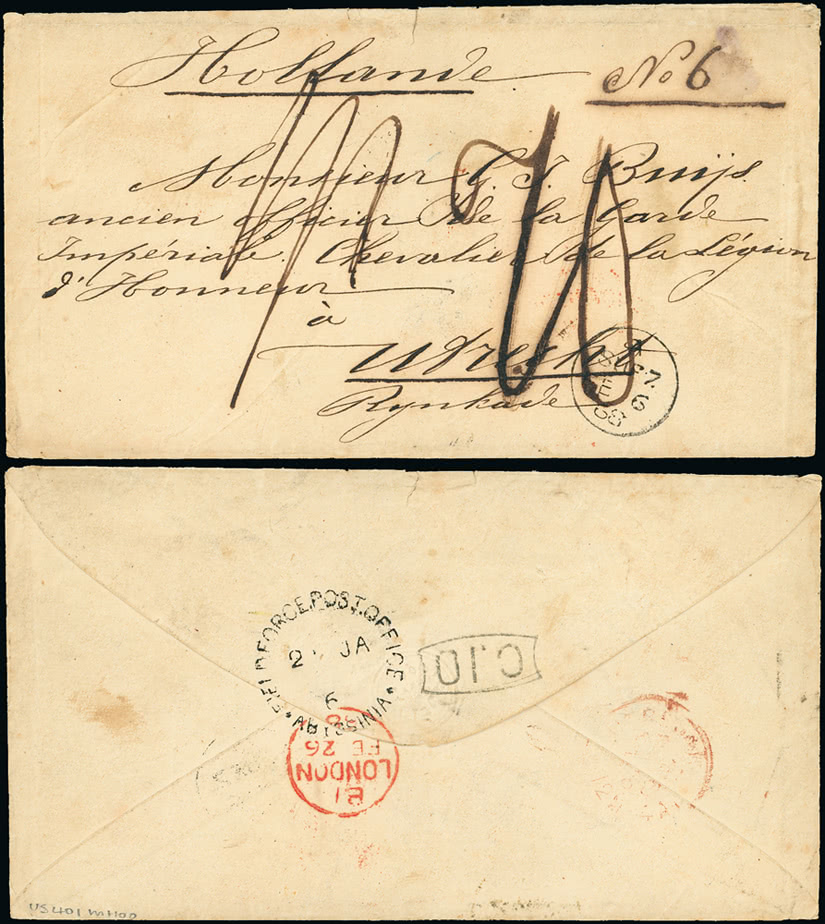 Hollande
No 6
Monsieur G. J. Buijs
ancien officier de la Garde
Impériale. Chevalier de la Légion
d'Honneur
à
Utrecht
Rynkade
SUEZ
FE 6
68
FIELD FORCE.POST.OFFICE
2 JA
6
*ABYSSINIA*
C.10
E1
LONDON
FE 26
68